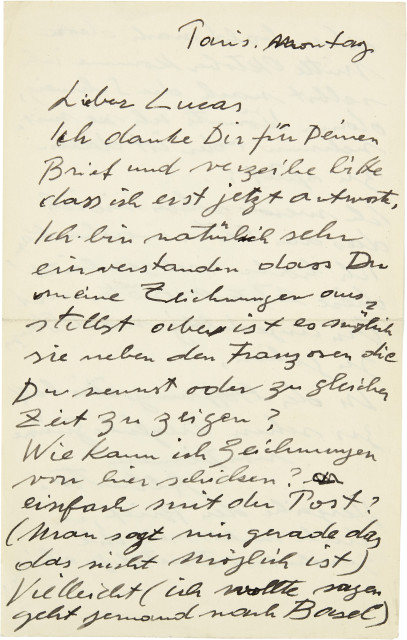 Paris. Montag
Lieber Lucas
Ich danke Dir für Deinen
Brief und verzeihe bitte
dass ich erst jetzt antworte,
Ich bin natürlich sehr
einverstanden dass Du
meine Zeichnungen aus=
stellst aber ist es möglich
sie neben den Franzosen die
Du nennst oder zu gleicher
Zeit zu zeigen?
Wie kann ich Zeichnungen
von hier schicken?
einfach mit der Post?
(Man sagt mir gerade das
das nicht möglich ist)
Vielleicht (ich wollte sagen
geht jemand nach Basel)